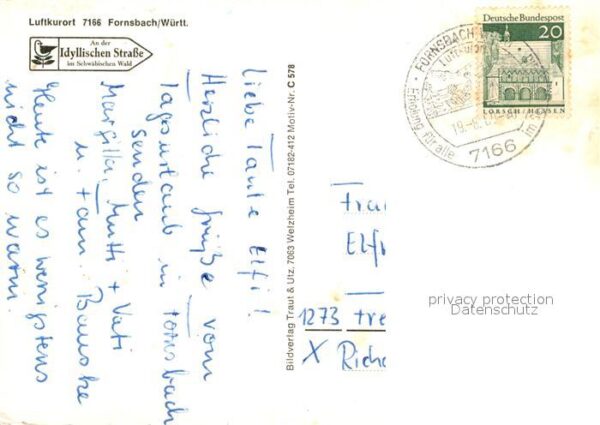 Luftkurort 7166 Fornsbach/Württ.
An der
Idyllischen Straße
im Schwäbischen Wald
Liebe Tante Elfi!
Herzliche Grüße vom
Tagesurlaub in Fornsbach
senden
Mutti + Vati
u. Fam.
Heute ist es wenigstens
nicht so warm.
Bildverlag Traut & Utz, 7063 Welzheim Tel. 07182-412 Motiv-Nr. C 578
Deutsche Bundespost
20
LORSCH / HESSEN
FORNSBACH
Luftkurort
für alle
7166
Frau
Elf
1273
X
privacy protection
Datenschutz